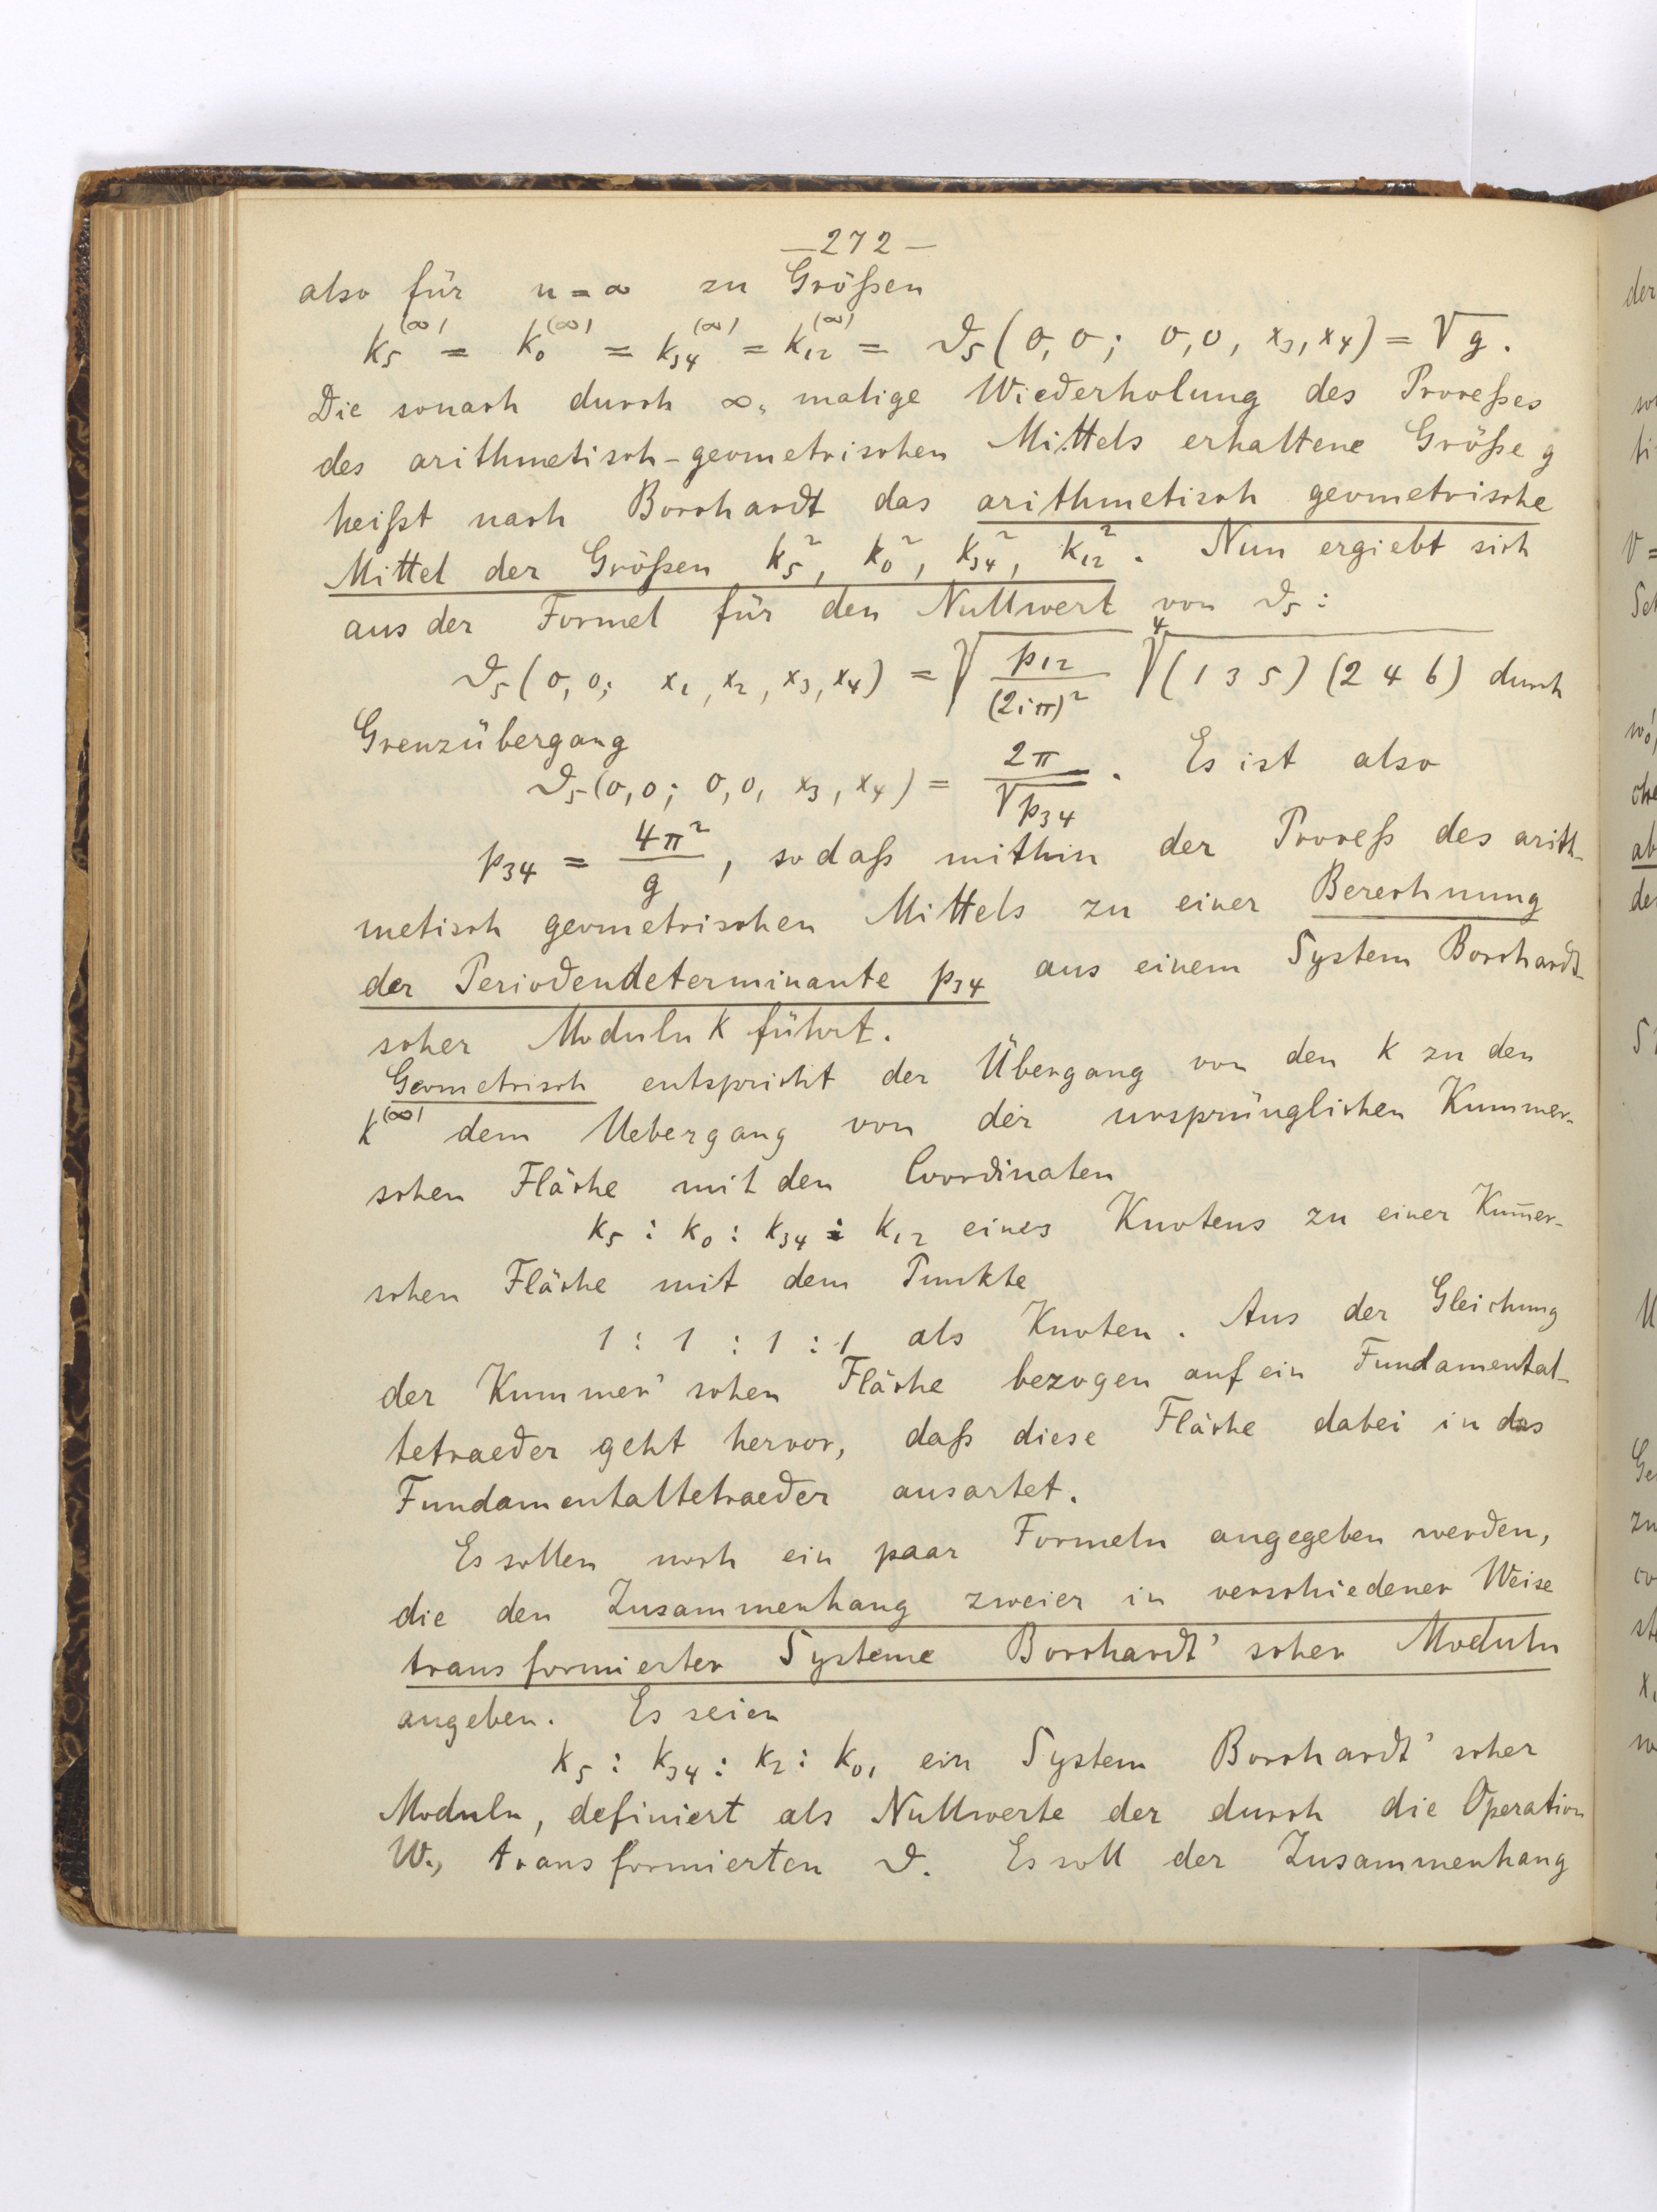 —272—
also für n = ∞ zu Größen
k₅^(∞) = k₀^(∞) = k₃₄^(∞) = k₁₂^(∞) = ϑ₅(0,0; 0,0, x₃, x₄) = √g.
Die sonach durch ∞-malige Wiederholung des Processes
des arithmetisch-geometrischen Mittels erhaltene Größe g
heißt nach Borchardt das arithmetisch geometrische
Mittel der Größen k₅², k₀², k₃₄², k₁₂². Nun ergiebt sich
aus der Formel für den Nullwert von ϑ₅:
ϑ₅(0,0; x₁, x₂, x₃, x₄) = √(p₁₂/(2iπ)²) ⁴√((135)(246)) durch
Grenzübergang
ϑ₅(0,0; 0,0, x₃, x₄) = 2π/√p₃₄. Es ist also
p₃₄ = 4π²/g, sodaß mithin der Proceß des arith-
metisch geometrischen Mittels zu einer Berechnung
der Periodendeterminante p₃₄ aus einem System Borchardt-
scher Moduln k führt.
Geometrisch entspricht der Übergang von den k zu den
k^(∞) dem Uebergang von der ursprünglichen Kummer-
schen Fläche mit den Coordinaten
k₅ : k₀ : k₃₄ : k₁₂ eines Knotens zu einer Kum̄er-
schen Fläche mit dem Punkte
1 : 1 : 1 : 1 als Knoten. Aus der Gleichung
der Kummer'schen Fläche bezogen auf ein Fundamental-
tetraeder geht hervor, daß diese Fläche dabei in das
Fundamentaltetraeder ausartet.
Es sollen noch ein paar Formeln angegeben werden,
die den Zusammenhang zweier in verschiedener Weise
transformierter Systeme Borchardt'scher Moduln
angeben. Es seien
k₅ : k₃₄ : k₂ : k₀₁ ein System Borchardt'scher
Moduln, definiert als Nullwerte der durch die Operation
W., transformierten ϑ. Es soll der Zusammenhang